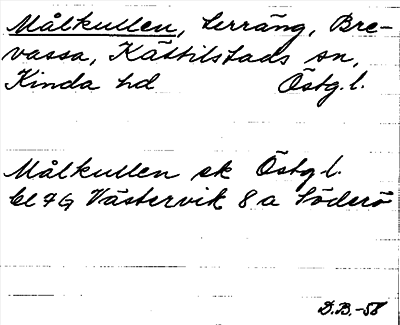 Målkullen, terräng, Bre-
vassa, Kättilstads sn,
Kinda hd Östg.l.
Målkullen ek Östg l.
bl 4G Västervik 8 a Söderö
D.B.-58